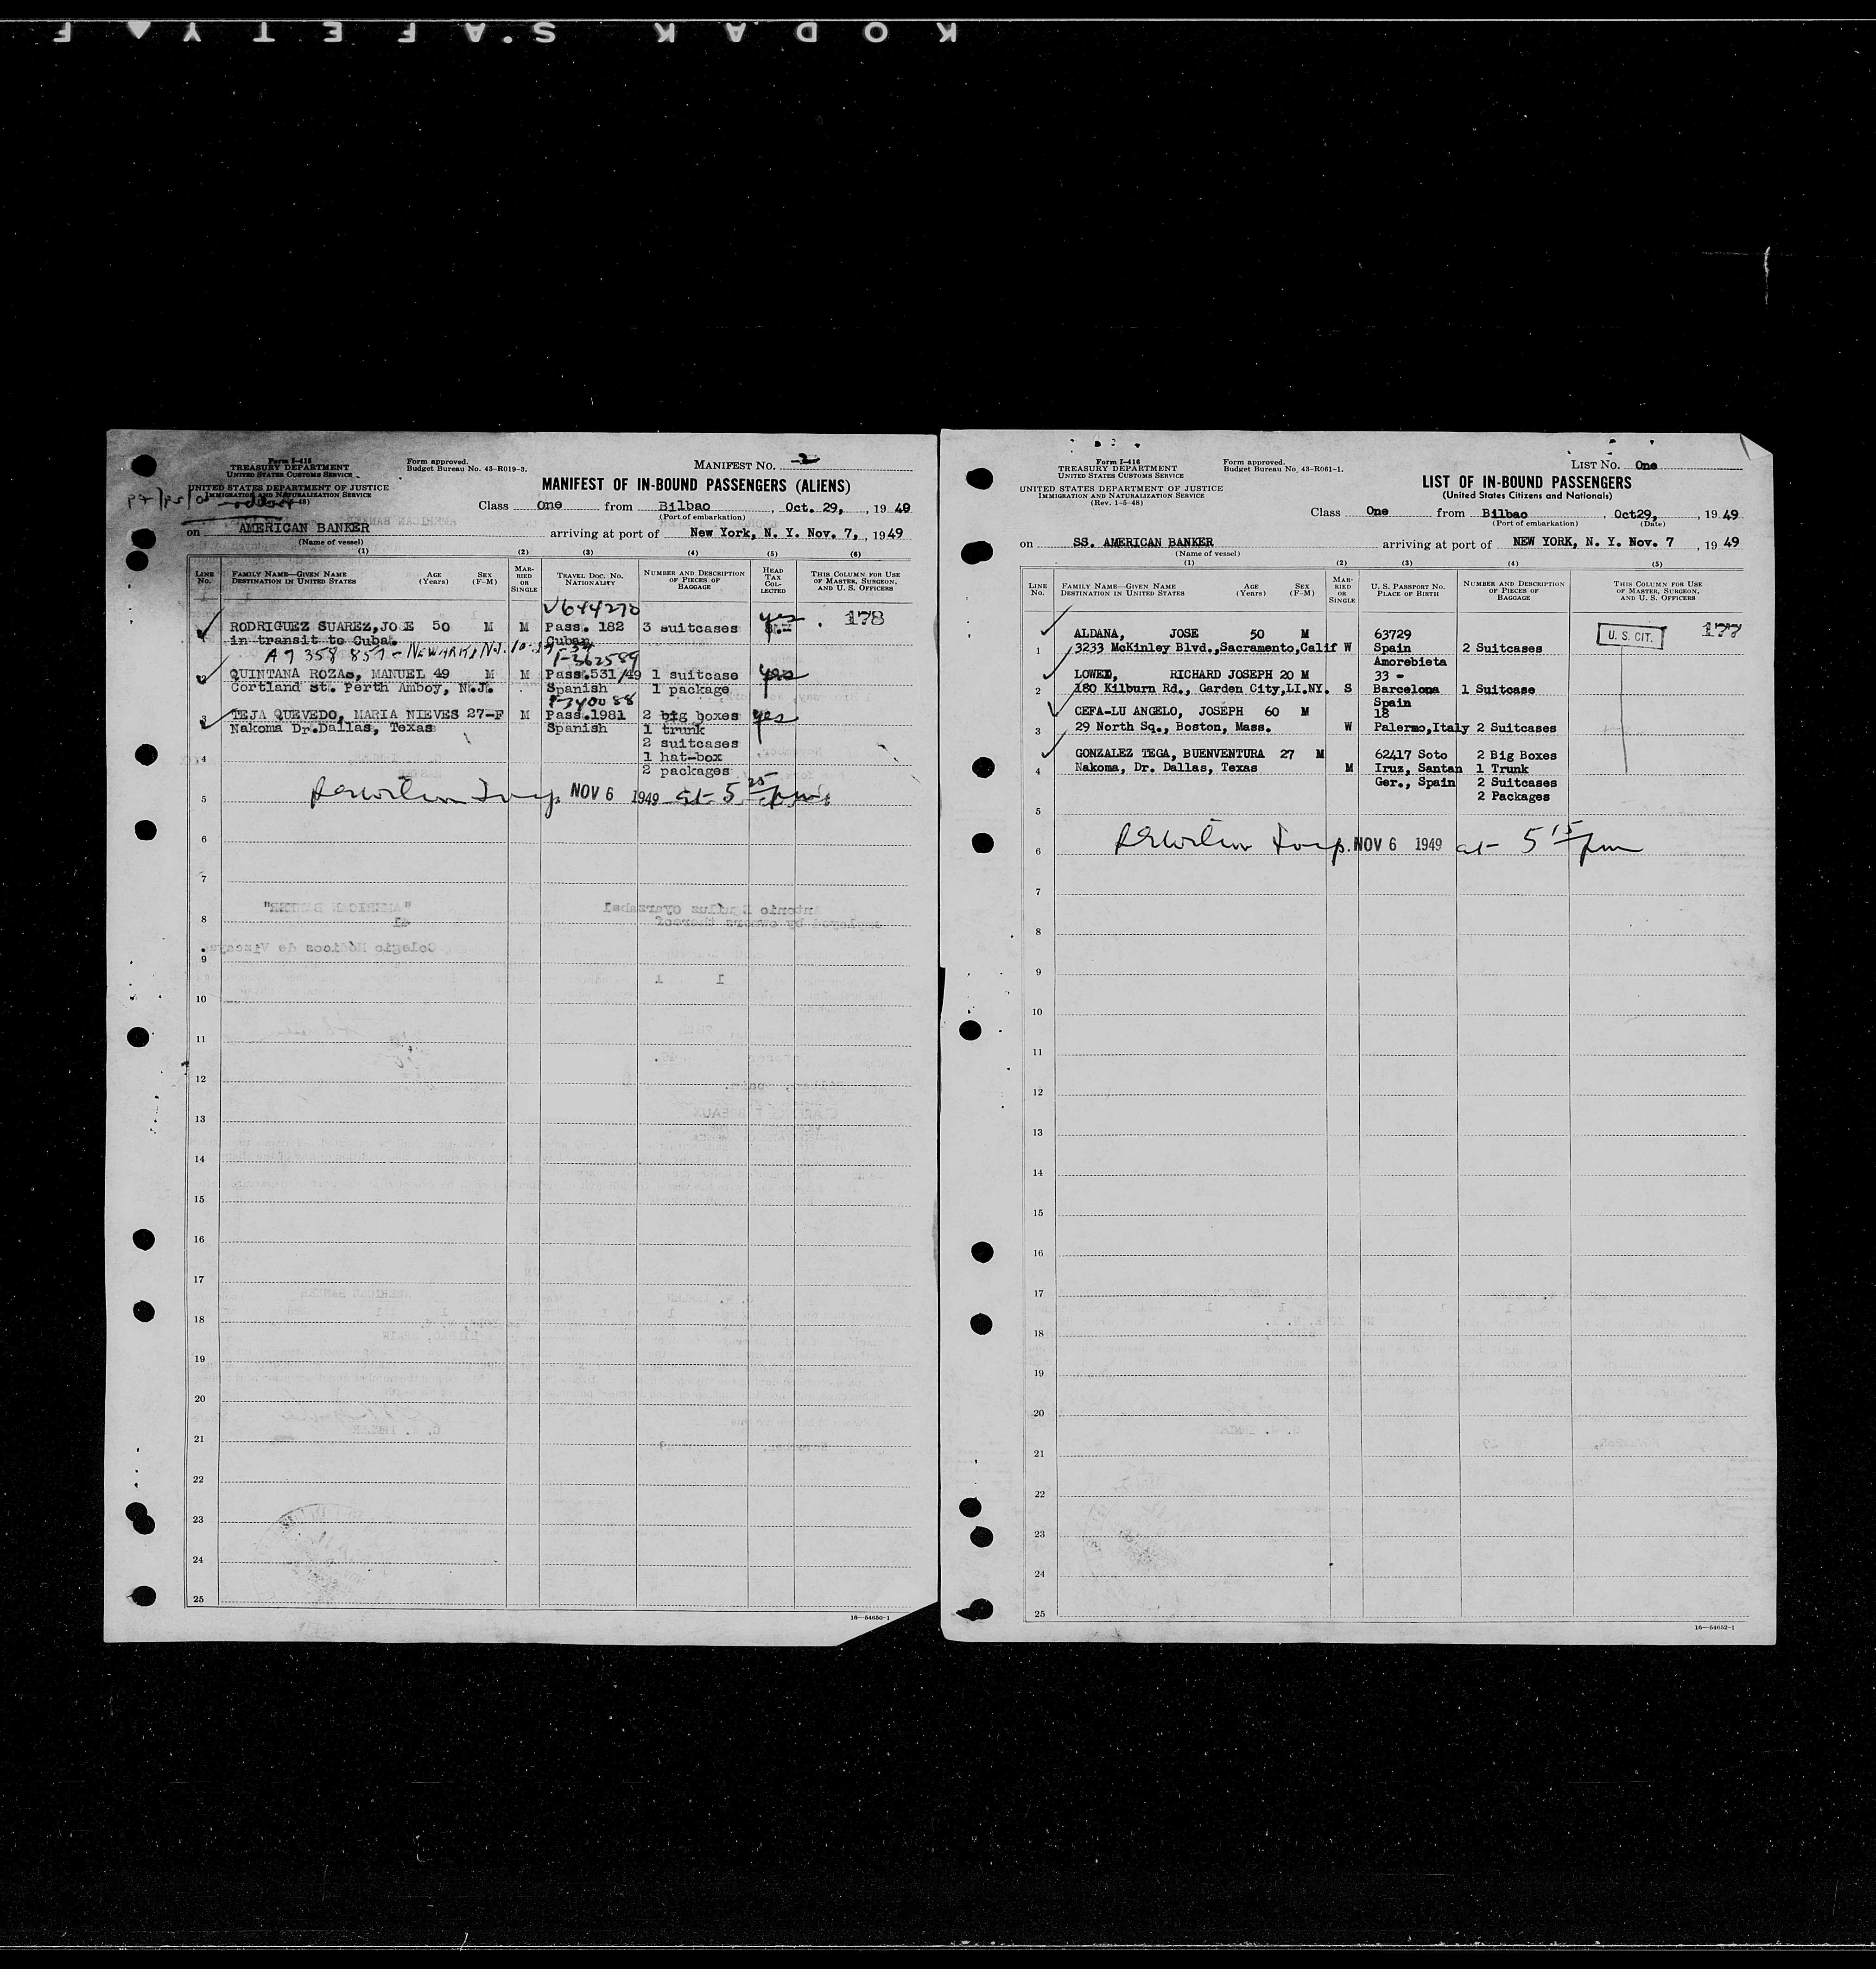 KODAK SAFETY F
Form I-416
TREASURY DEPARTMENT
UNITED STATES CUSTOMS SERVICE
UNITED STATES DEPARTMENT OF JUSTICE
IMMIGRATION AND NATURALIZATION SERVICE
Form approved.
Budget Bureau No. 43-R019-3.
MANIFEST NO. 2
MANIFEST OF IN-BOUND PASSENGERS (ALIENS)
Class One from Bilbao, Oct. 29, 1949
(Port of embarkation)
on AMERICAN BANKER arriving at port of New York, N. Y. Nov. 7, 1949
(Name of vessel)
(1) (2) (3) (4) (5) (6)
LINE No. FAMILY NAME—GIVEN NAME DESTINATION IN UNITED STATES AGE (Years) SEX (F-M) MARRIED OR SINGLE TRAVEL DOC. NO. NATIONALITY NUMBER AND DESCRIPTION OF PIECES OF BAGGAGE HEAD TAX COLLECTED THIS COLUMN FOR USE OF MASTER, SURGEON, AND U. S. OFFICERS
V644270
1 RODRIGUEZ SUAREZ, JOSE 50 M M Pass. 182 3 suitcases yes 178
in transit to Cuba. Cuban
A7 358 857 - NEWARK, N.J.
QUINTANA ROZAS, MANUEL 49 M M Pass.531/49 1 suitcase yes
Cortland St. Perth Amboy, N.J. Spanish 1 package
3 TEJA QUEVEDO, MARIA NIEVES 27-F M Pass.1981 2 big boxes yes
Nakoma Dr.Dallas, Texas Spanish 1 trunk
2 suitcases
4 1 hat-box
2 packages
5 NOV 6 1949 at 5 25 pm
6
7
8
9
10
11
12
13
14
15
16
17
18
19
20
21
22
23
24
25
16—54650-1
Form I-416
TREASURY DEPARTMENT
UNITED STATES CUSTOMS SERVICE
UNITED STATES DEPARTMENT OF JUSTICE
IMMIGRATION AND NATURALIZATION SERVICE
(Rev. 1-5-48)
Form approved.
Budget Bureau No. 43-R061-1.
LIST NO. One
LIST OF IN-BOUND PASSENGERS
(United States Citizens and Nationals)
Class One from Bilbao, Oct29, 1949
(Port of embarkation) (Date)
on SS. AMERICAN BANKER arriving at port of NEW YORK, N. Y. Nov. 7, 1949
(Name of vessel)
(1) (2) (3) (4) (5)
LINE No. FAMILY NAME—GIVEN NAME DESTINATION IN UNITED STATES AGE (Years) SEX (F-M) MARRIED OR SINGLE U. S. PASSPORT NO. PLACE OF BIRTH NUMBER AND DESCRIPTION OF PIECES OF BAGGAGE THIS COLUMN FOR USE OF MASTER, SURGEON, AND U. S. OFFICERS
ALDANA, JOSE 50 M 63729 U. S. CIT. 177
1 3233 McKinley Blvd.,Sacramento,Calif W Spain 2 Suitcases
Amorebieta
LOWED, RICHARD JOSEPH 20 M 33 -
2 180 Kilburn Rd., Garden City,LI.NY. S Barcelona 1 Suitcase
Spain
CEFA-LU ANGELO, JOSEPH 60 M 18
3 29 North Sq., Boston, Mass. W Palermo,Italy 2 Suitcases
GONZALEZ TEGA, BUENVENTURA 27 M 62417 Soto 2 Big Boxes
4 Nakoma, Dr. Dallas, Texas M Iruz, Santan 1 Trunk
Ger., Spain 2 Suitcases
2 Packages
5
6 NOV 6 1949 at 5 15 pm
7
8
9
10
11
12
13
14
15
16
17
18
19
20
21
22
23
24
25
16—54652-1